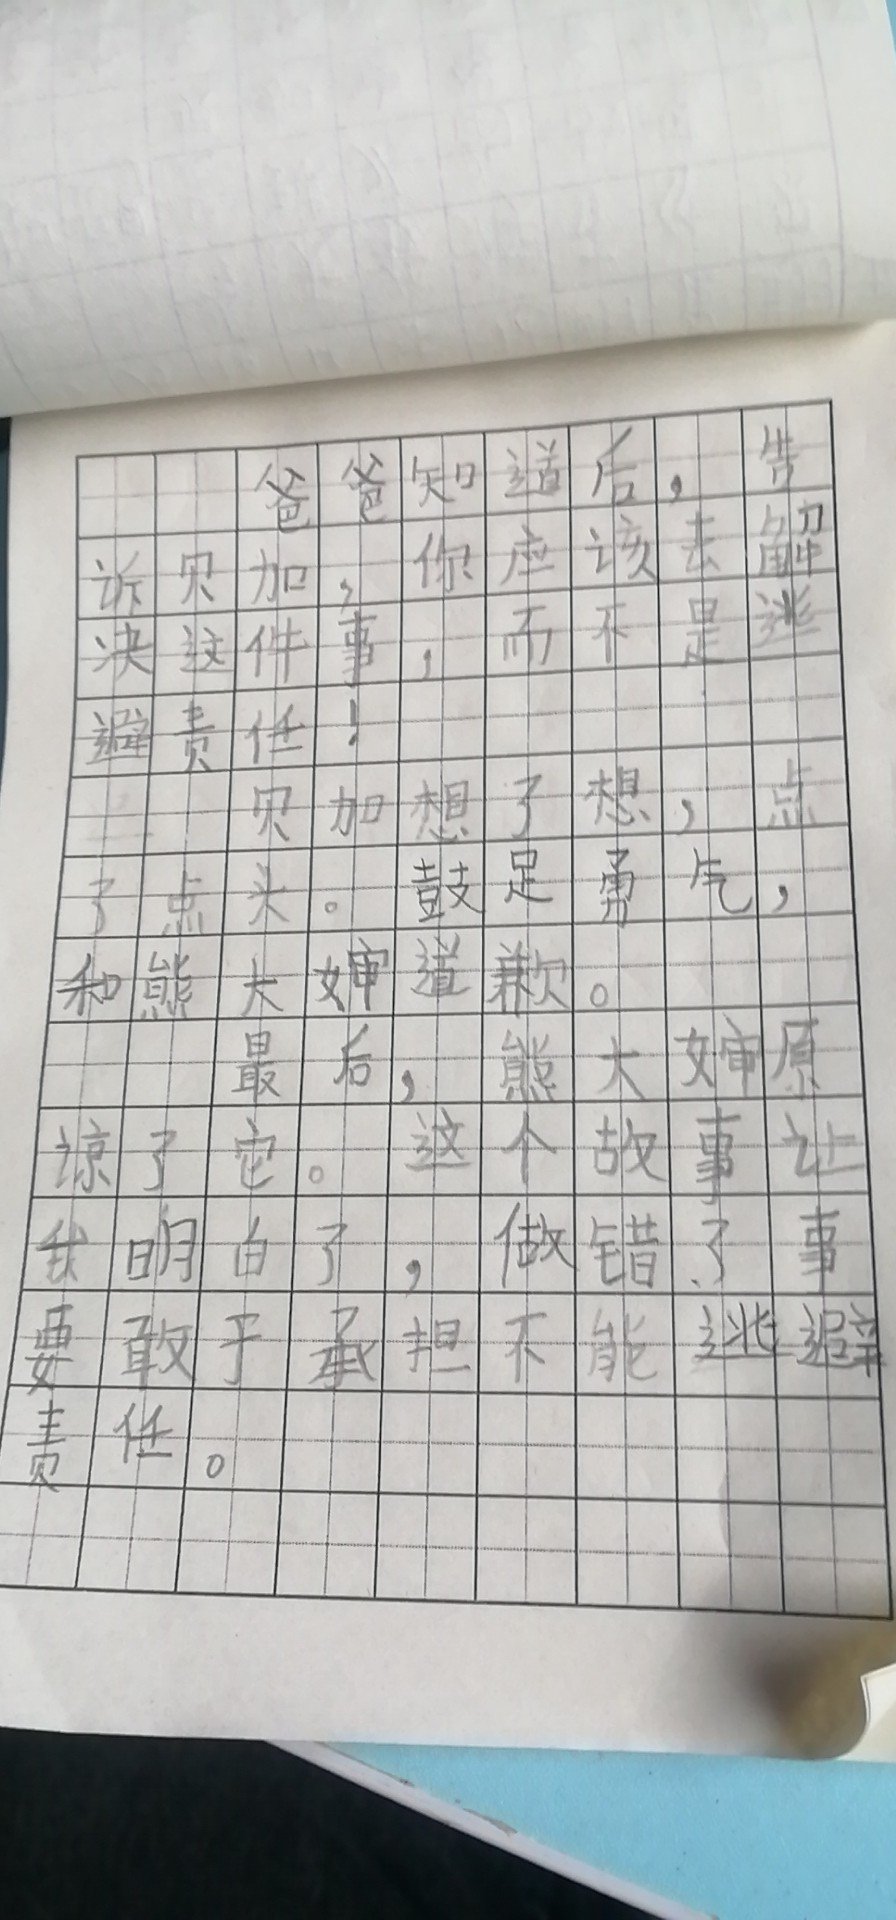 爸爸知道后，告
诉贝加，你应该去解
决这件事，而不是逃
避责任！
贝加想了想，点
了点头。鼓足勇气，
和熊大婶道歉。
最后，熊大婶原
谅了它。这个故事让
我明白了，做错了事
要敢于承担不能逃避
责任。